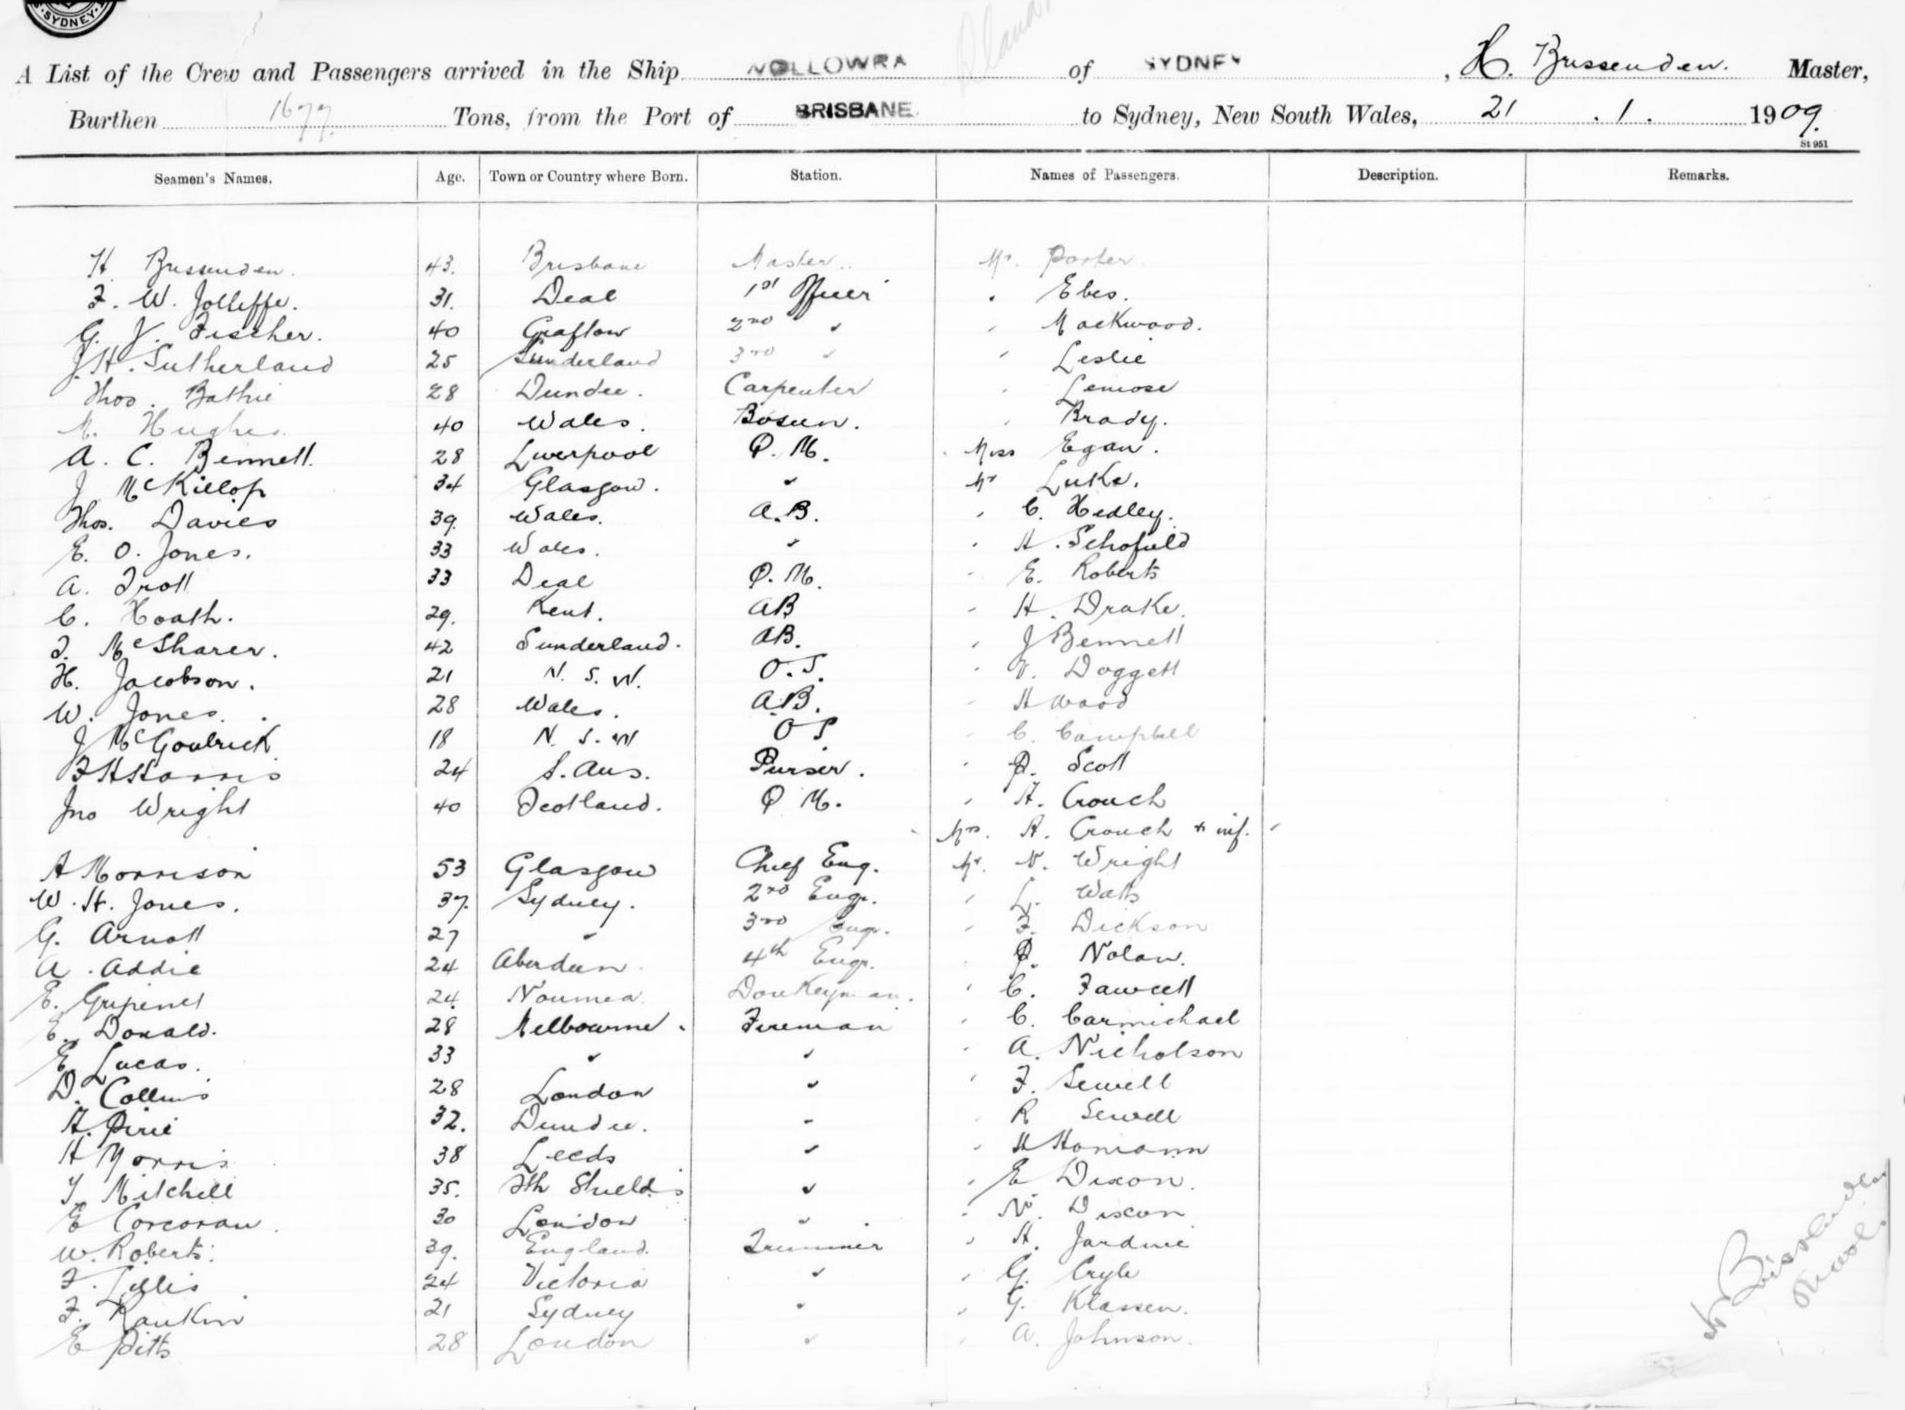 SYDNEY.
A List of the Crew and Passengers arrived in the Ship WOLLOWRA of SYDNEY, H. Brissenden. Master,
Burthen 1677 Tons, from the Port of BRISBANE. to Sydney, New South Wales, 21 . 1 . 1909.
St 951
Seamen's Names. Age. Town or Country where Born. Station. Names of Passengers. Description. Remarks.
H. Brissenden. 43. Brisbane Master.. Mr. Porter
F. W. Jolliffe. 31. Deal 1st Officer " Ebes.
G. V. Fischer. 40 Grafton 2nd " " Mackwood.
J. H. Sutherland 25 Sunderland 3rd " " Leslie
Thos. Bathie 28 Dundee. Carpenter " Lemose
M. Hughes. 40 Wales. Bosun. " Brady.
A. C. Bennett. 28 Liverpool Q. M. Miss Egan.
J. McKillop 34 Glasgow. " Mr Luke.
Thos. Davies 39. Wales. A.B. " C. Hedley.
E. O. Jones. 33 Wales. " " H. Schofield
A. Trott 33 Deal Q. M. " E. Roberts
C. Hoath. 29. Kent. AB " H. Drake.
J. McSharer. 42 Sunderland. AB. " J Bennett
H. Jacobson. 21 N. S. W. O.S. " V. Doggett
W. Jones. 28 Wales. A.B. " H Wood
J McGoulrick 18 N. S. W O S " C. Campbell
F H Harris 24 S. Aus. Purser. " P. Scott
Jno Wright 40 Scotland. Q M. " A. Crouch
Mrs. A. Crouch + inf.
A Morrison 53 Glasgow Chief Eng. Mr. N. Wright
W. H. Jones. 37. Sydney. 2nd Engr. " L. Watts
G. Arnott 27 " 3rd Engr. " F. Dickson
A. Addie 24 Aberdeen. 4th Engr. " P. Nolan.
E. Gripenet 24. Noumea. Donkeyman. " C. Fawcett
E. Donald. 28 Melbourne. Fireman " C. Carmichael
E Lucas. 33 " " " A. Nicholson
D. Collins 28 London " " F. Sewell
A. Pirie 32. Dundee. " " R Sewell
H Morris 38 Leeds " " H Homann
T. Mitchell 35. Sth Shields " " E Dixon.
E Corcoran. 30 London " " N. Dixon
W. Roberts. 39. England. Trimmer " A. Jardine
F. Lillis 24 Victoria " " G. Cryle
F. Rankin 21 Sydney " " G. Klassen.
E Pitts 28 London " " A. Johnson.
H Brissenden